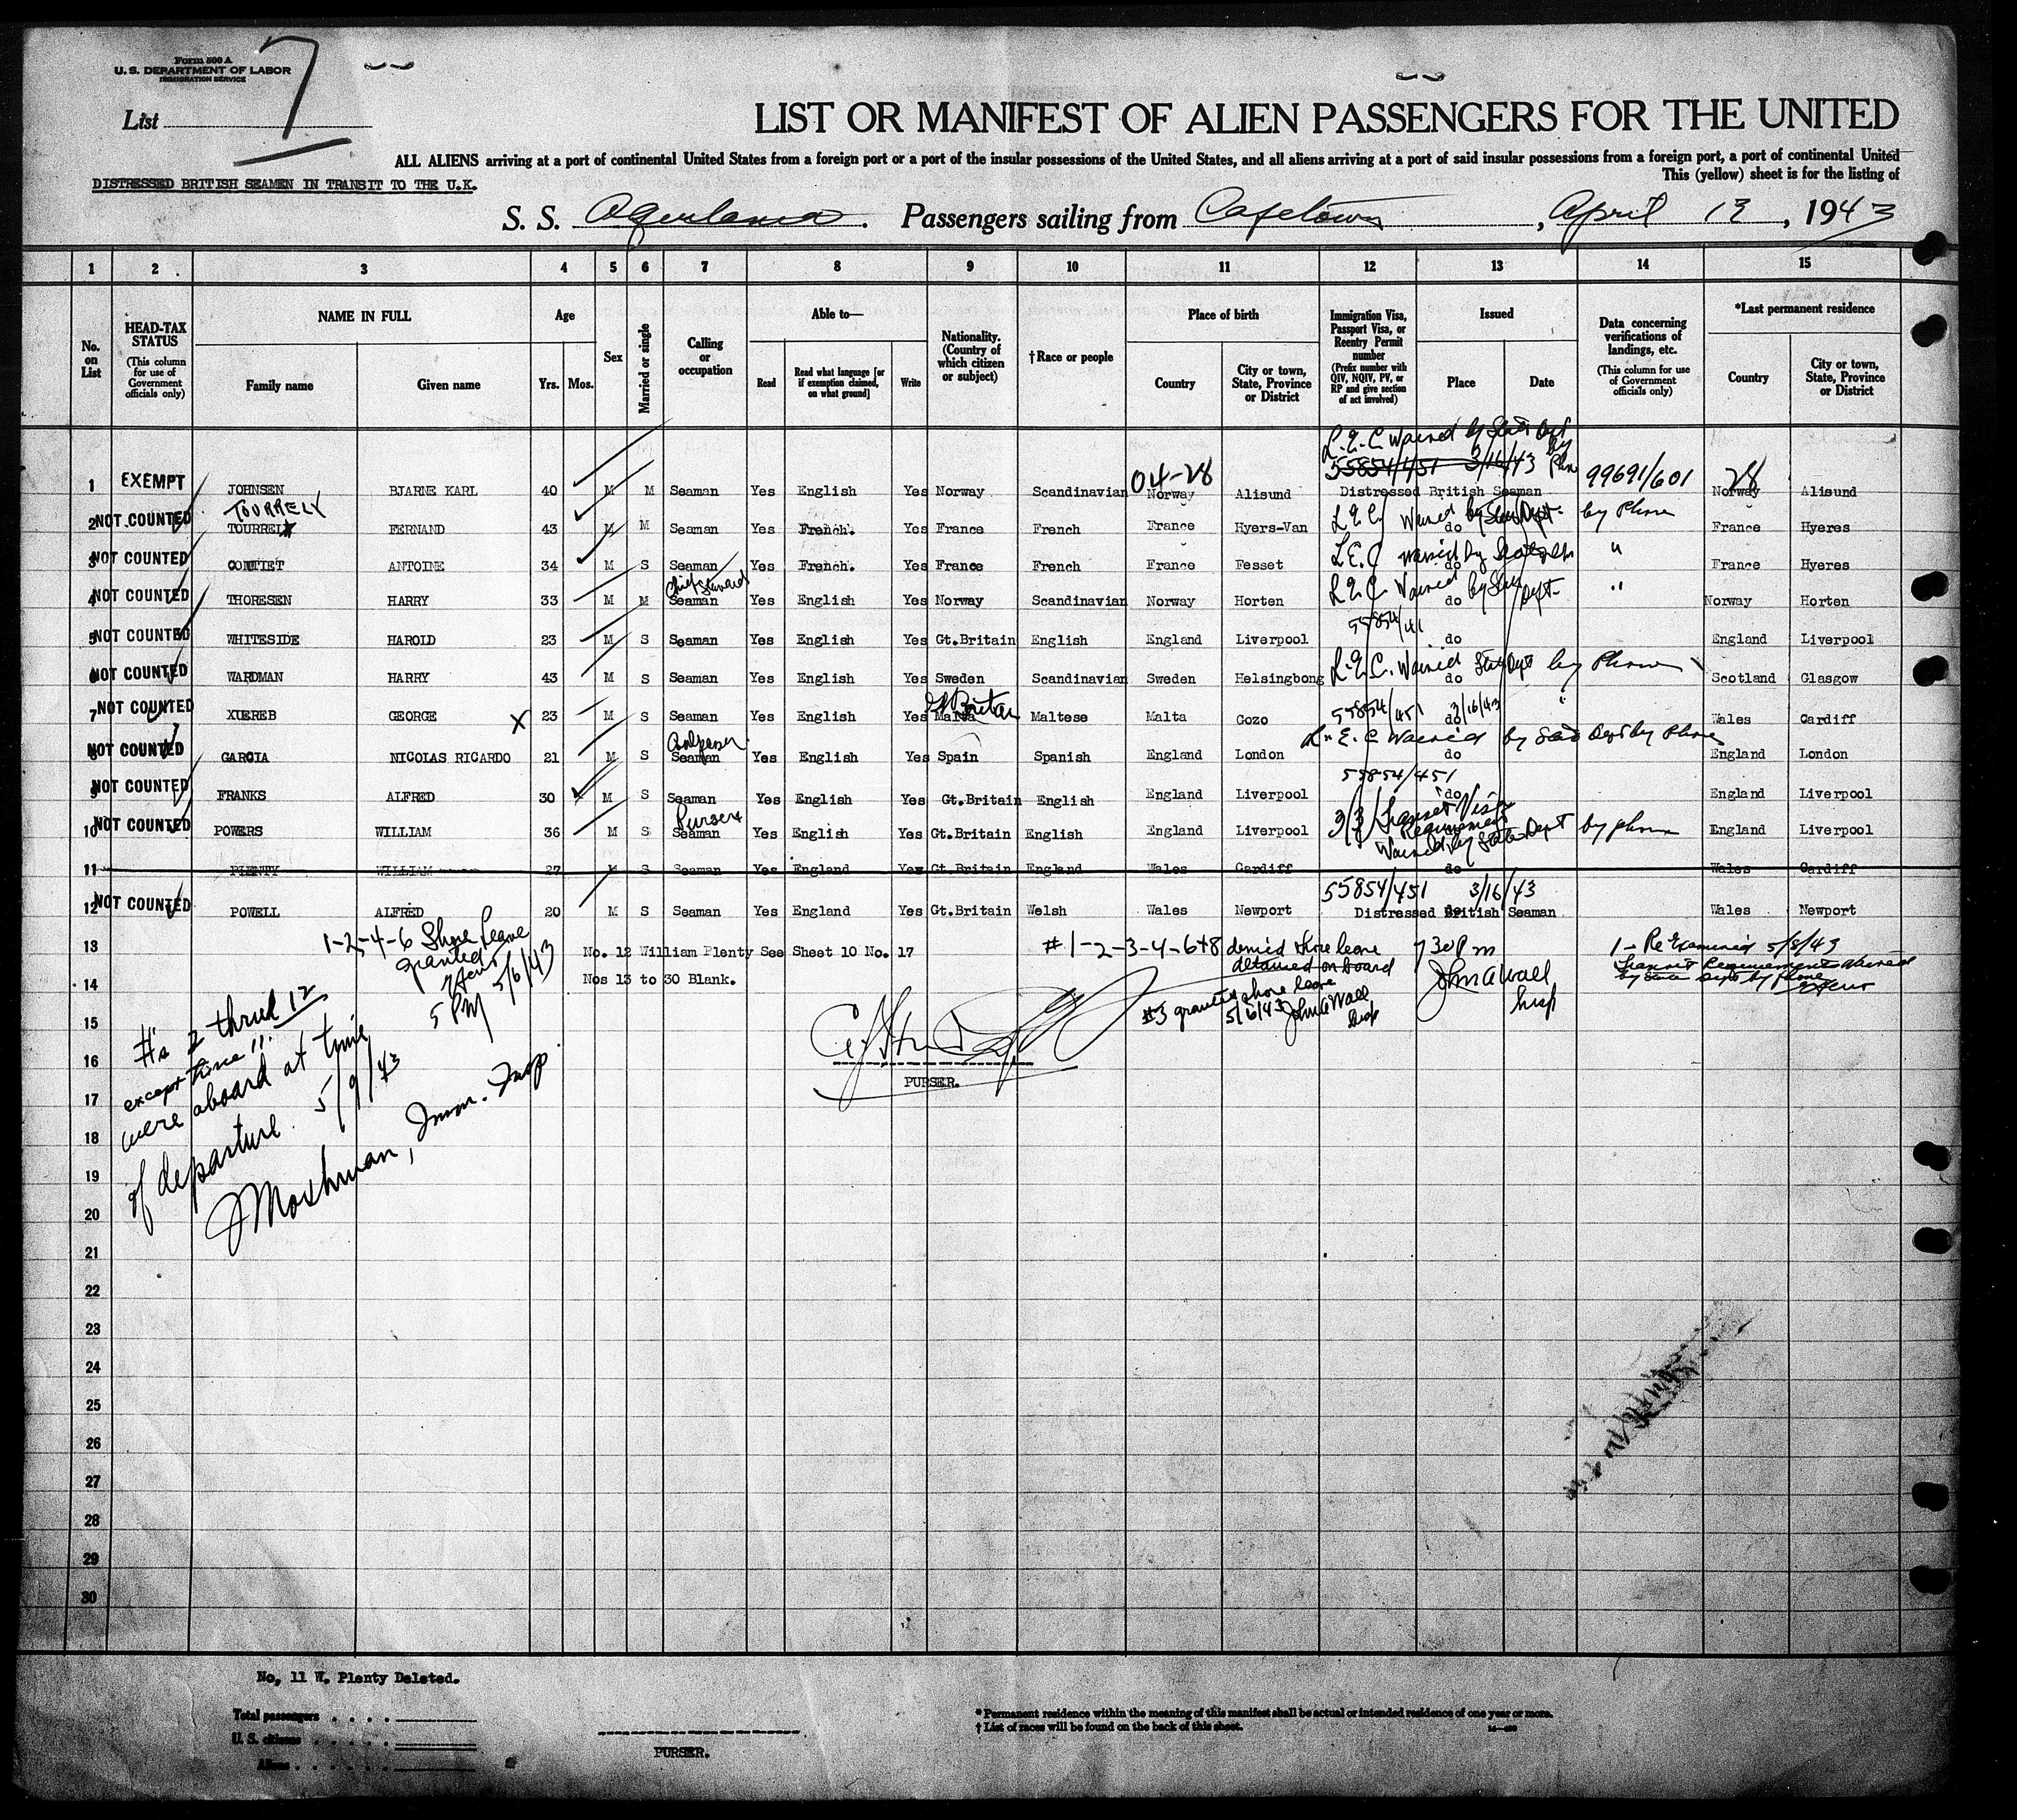 Form 500 A
U. S. DEPARTMENT OF LABOR
IMMIGRATION SERVICE
List 7
LIST OR MANIFEST OF ALIEN PASSENGERS FOR THE UNITED
ALL ALIENS arriving at a port of continental United States from a foreign port or a port of the insular possessions of the United States, and all aliens arriving at a port of said insular possessions from a foreign port, a port of continental United
This (yellow) sheet is for the listing of
DISTRESSED BRITISH SEAMEN IN TRANSIT TO THE U.K.
S. S. Passengers sailing from Capetown, April 13, 1943
1 2 3 4 5 6 7 8 9 10 11 12 13 14 15
No. on List
HEAD-TAX STATUS (This column for use of Government officials only)
NAME IN FULL Family name Given name
Age Yrs. Mos.
Sex
Married or single
Calling or occupation
Able to— Read Read what language [or if exemption claimed, on what ground] Write
Nationality. (Country of which citizen or subject)
†Race or people
Place of birth Country City or town, State, Province or District
Immigration Visa, Passport Visa, or Reentry Permit number (Prefix number with QIV, NQIV, PV, or RP and give section of act involved)
Issued Place Date
Data concerning verifications of landings, etc. (This column for use of Government officials only)
*Last permanent residence Country City or town, State, Province or District
L.E.C Waived by State Dept by Phn
04-28 55854/451 3/16/43 99691/601 28
1 EXEMPT JOHNSEN BJARNE KARL 40 M M Seaman Yes English Yes Norway Scandinavian Norway Alisund Distressed British Seaman Norway Alisund
TOURRELY
2 NOT COUNTED TOURREL FERNAND 43 M M Seaman Yes French. Yes France French France Hyers-Van L.E.C. Waived by State Dept. do by Phone France Hyeres
3 NOT COUNTED ANTOINE 34 M S Seaman Yes French. Yes France French France Fesset L.E.C waived by State do " France Hyeres
Chief Steward
4 NOT COUNTED THORESEN HARRY 33 M M Seaman Yes English Yes Norway Scandinavian Norway Horten L.E.C. Waived by State Dept. do " Norway Horten
55854/41
5 NOT COUNTED WHITESIDE HAROLD 23 M S Seaman Yes English Yes Gt.Britain English England Liverpool do England Liverpool
6 NOT COUNTED WARDMAN HARRY 43 M S Seaman Yes English Yes Sweden Scandinavian Sweden Helsingbong L.E.C. Waived State Dept by Phone do Scotland Glasgow
Gt Britain
7 NOT COUNTED XUEREB GEORGE X 23 M S Seaman Yes English Yes Malta Maltese Malta Gozo 55854/451 do 3/16/43 " Wales Cardiff
L.E.C Waived by State Dept by Phone
8 NOT COUNTED GARCIA NICOLAS RICARDO 21 M S Seaman Yes English Yes Spain Spanish England London do England London
55854/451
9 NOT COUNTED FRANKS ALFRED 30 M S Seaman Yes English Yes Gt.Britain English England Liverpool do England Liverpool
Purser
10 NOT COUNTED POWERS WILLIAM 36 M S Seaman Yes English Yes Gt.Britain English England Liverpool 3/3 Transit Visa Requirement Waived by State Dept by phone England Liverpool
11 PLENTY WILLIAM 27 M S Seaman Yes England Yes Gt.Britain England Wales Cardiff do Wales Cardiff
55854/451 3/16/43
12 NOT COUNTED POWELL ALFRED 20 M S Seaman Yes England Yes Gt.Britain Welsh Wales Newport Distressed British Seaman Wales Newport
1-2-4-6 Shore Leave granted
5 PM 5/6/43
13 No. 12 William Plenty See Sheet 10 No. 17
14 Nos 13 to 30 Blank.
#1-2-3-4-6+8 denied shore leave 730 Pm
detained on board John A Wall Insp
#3 granted shore leave 5/6/43 John A Wall Insp
1- Re Examined 5/8/43
Transit Requirements Waived by State Dept by phone
15
16
17
18
19
20
21
22
23
24
25
26
27
28
29
30
#s 2 thru 12
except line 11.
were aboard at time
of departure. 5/9/43
J Moshman, Imm. Insp
PURSER.
No, 11 W. Plenty Deleted.
Total passengers
U. S. citizens
Aliens
PURSER.
* Permanent residence within the meaning of this manifest shall be actual or intended residence of one year or more.
† List of races will be found on the back of this sheet.